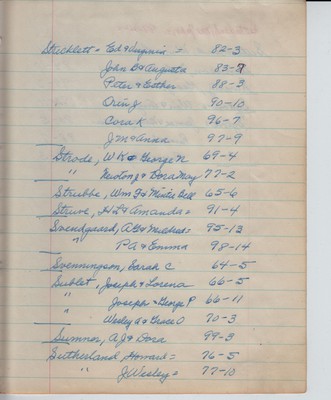 Stecklett = Ed & Virginia = 82-3
John D & Augusta 83-2
Peter & Esther 88-3
Orin J 90-10
Cora K 96-7
J M & Anna 97-9
Strode, W K & George N 69-4
" Newton J & Dora May 77-2
Strubbe, Wm F & Minta Bell 65-6
Struve, H L & Amanda = 91-4
Svendgaard, A G & Mildred = 95-13
" P A & Emma 98-14
Svenningson, Sarah C 64-5
Sublet, Joseph & Lorena 66-5
" Joseph & George P 66-11
Wesley A & Grace O 70-3
Sumner, A J & Dora 99-3
Sutherland Howard = 76-5
" J Wesley = 77-10